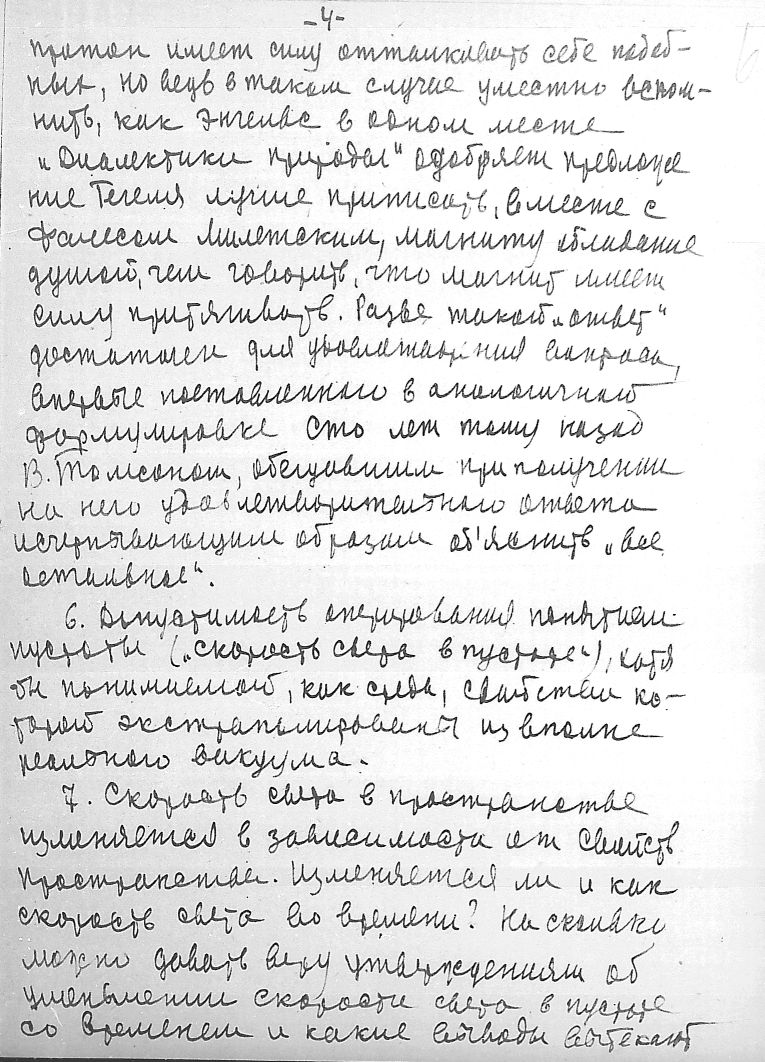 -4-
протон имеет силу отталкивать себе подоб-
ных, но ведь в таком случае уместно вспом-
нить, как Энгельс в одном месте
„Диалектики природы" одобряет предложе
ние Гегеля лучше приписать, вместе с
Фалесом Милетским, магниту обладание
душой, чем говорить, что магнит имеет
силу притягивать. Разве такой „ответ"
достаточен для удовлетворения вопроса,
впервые поставленного в аналогичной
формулировке сто лет тому назад
В. Томсоном, обещавшим при получении
на него удовлетворительного ответа
исчерпывающим образом об'яснить „все
остальное".
6. Допустимость оперирования понятием
пустоты („скорость света в пустоте"), хотя
бы понимаемой, как среда, свойства ко-
торой экстраполированы из вполне
реального вакуума.
7. Скорость света в пространстве
изменяется в зависимости от свойств
пространства. Изменяется ли и как
скорость света во времени? На сколько
можно давать веру утверждениям об
уменьшении скорости света в пустоте
со временем и какие выводы вытекают